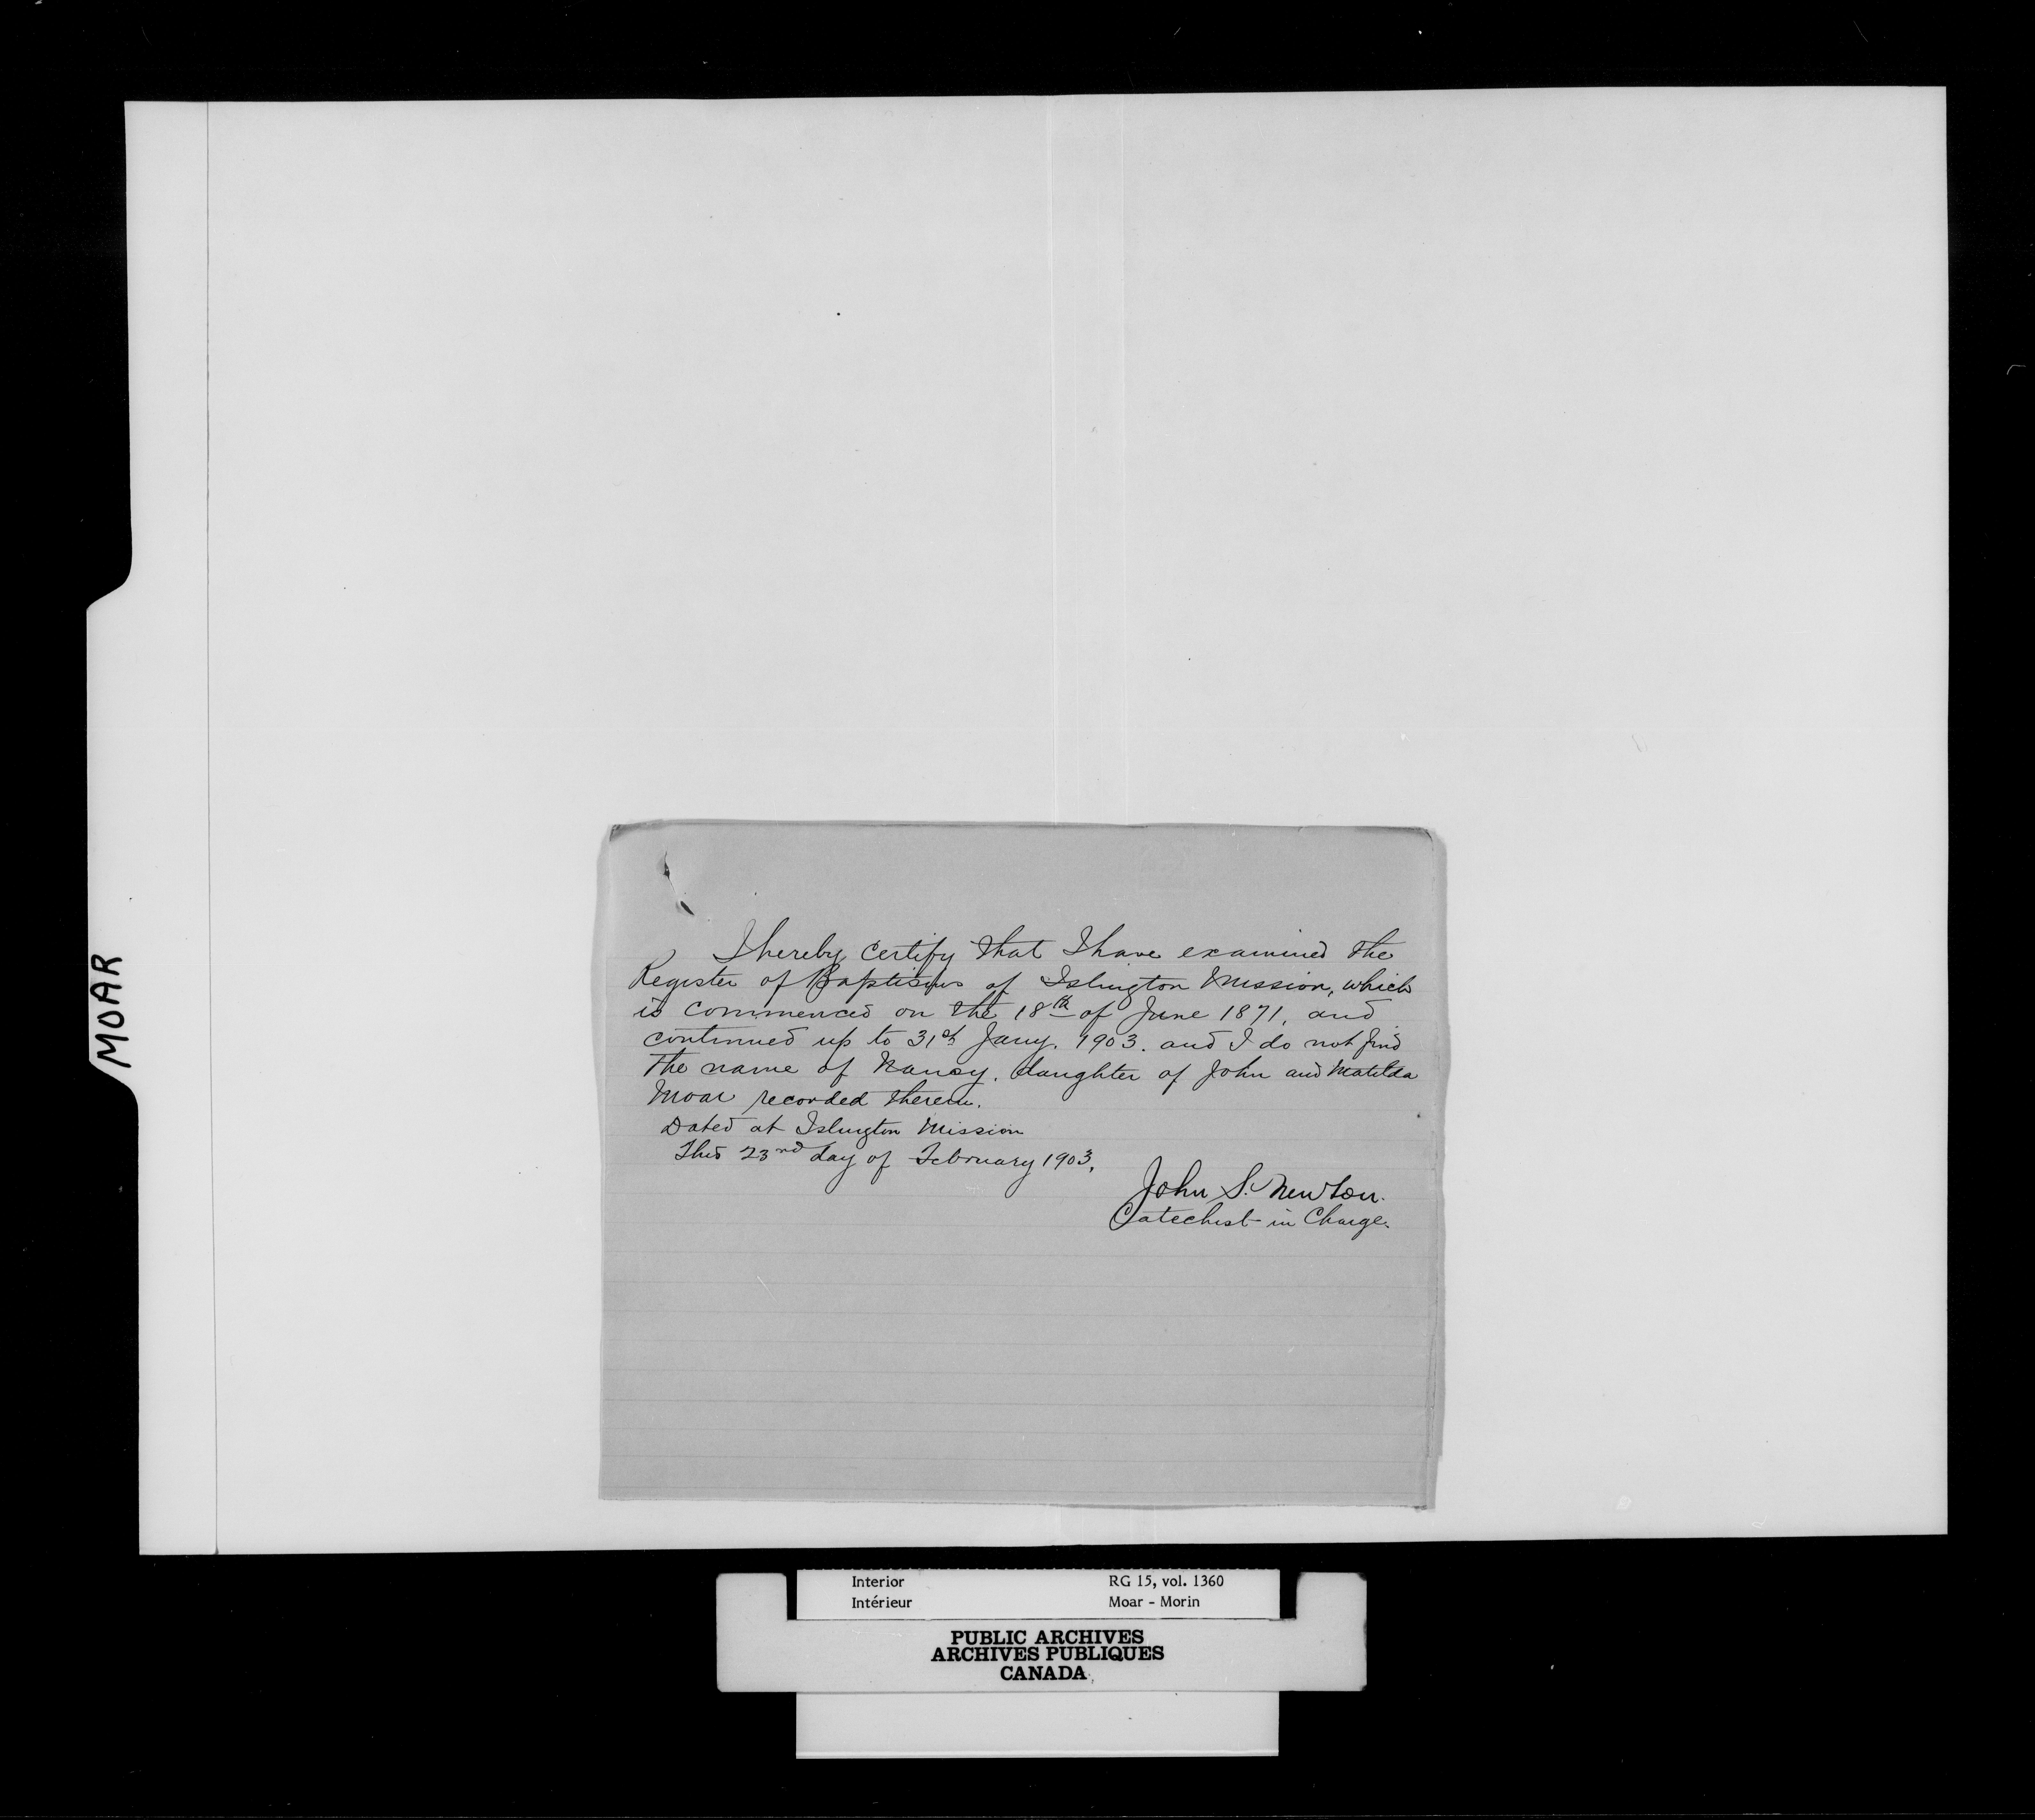 MOAR
I hereby certify that I have examined the
Register of Baptisms of Islington Mission, which
is commenced on the 18th of June 1871, and
continued up to 31st Jany. 1903. and I do not find
the name of Nancy, daughter of John and Matilda
Moar recorded therein.
Dated at Islington Mission
This 23rd day of February 1903.
John S. Newton.
Catechist in Charge.
Interior RG 15, vol. 1360
Intérieur Moar - Morin
PUBLIC ARCHIVES
ARCHIVES PUBLIQUES
CANADA